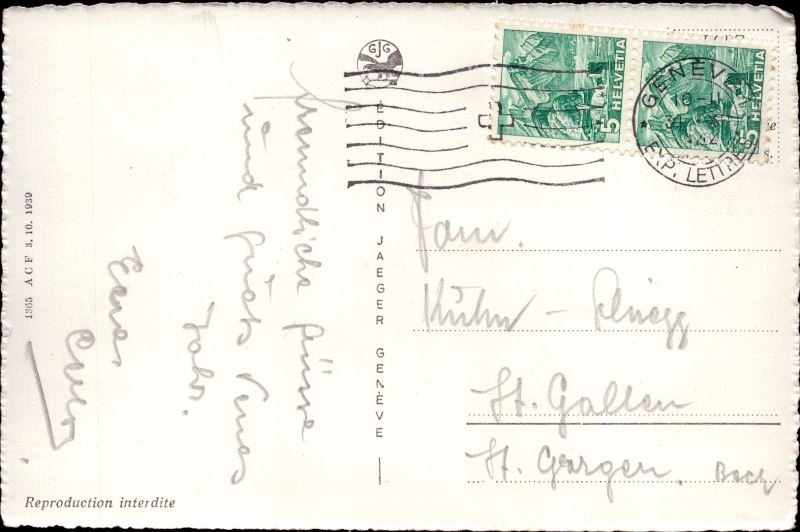 freundliche Grüsse
und guets Neues
Jahr.
Euer
GJG
ÉDITION JAEGER GENÈVE
1365 ACF 3.10.1939
Reproduction interdite
5 HELVETIA
5 HELVETIA
GENÈVE
EXP. LETTRES
Fam.
Kuhn - Flüegg
St. Gallen
St. Georgen.